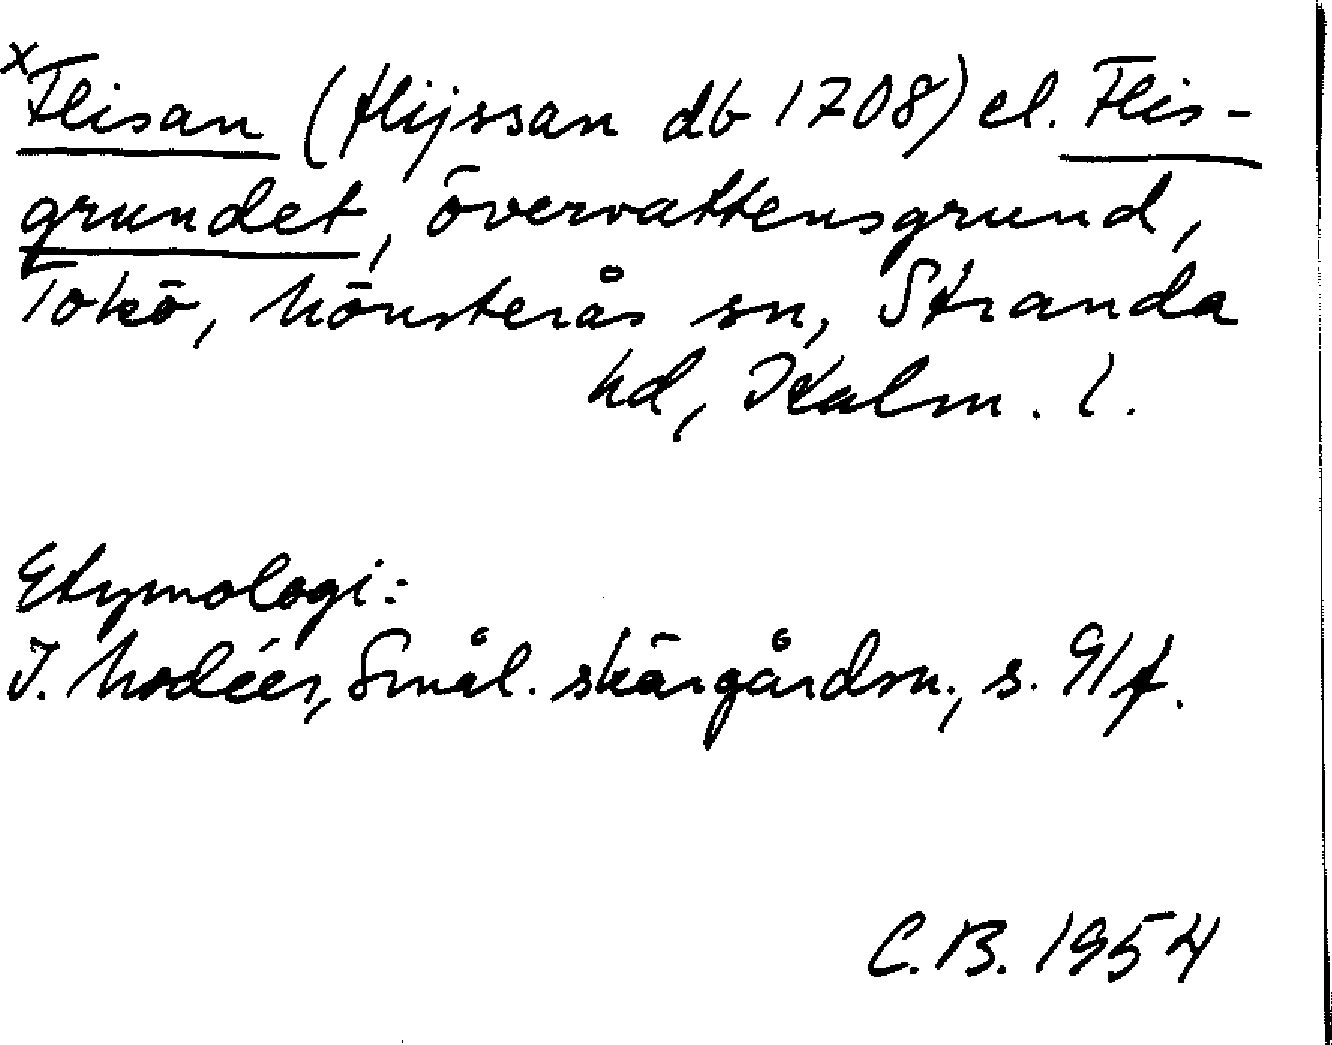 x Flisan (flijssan db 1708) el. Flis-
grundet, övervattensgrund,
Tokö, Mönsterås sn, Stranda
hd, Kalm. l.
Etymologi:
I. Modéer, Smål. skärgårdsn., s. 91 f.
C.B. 1954